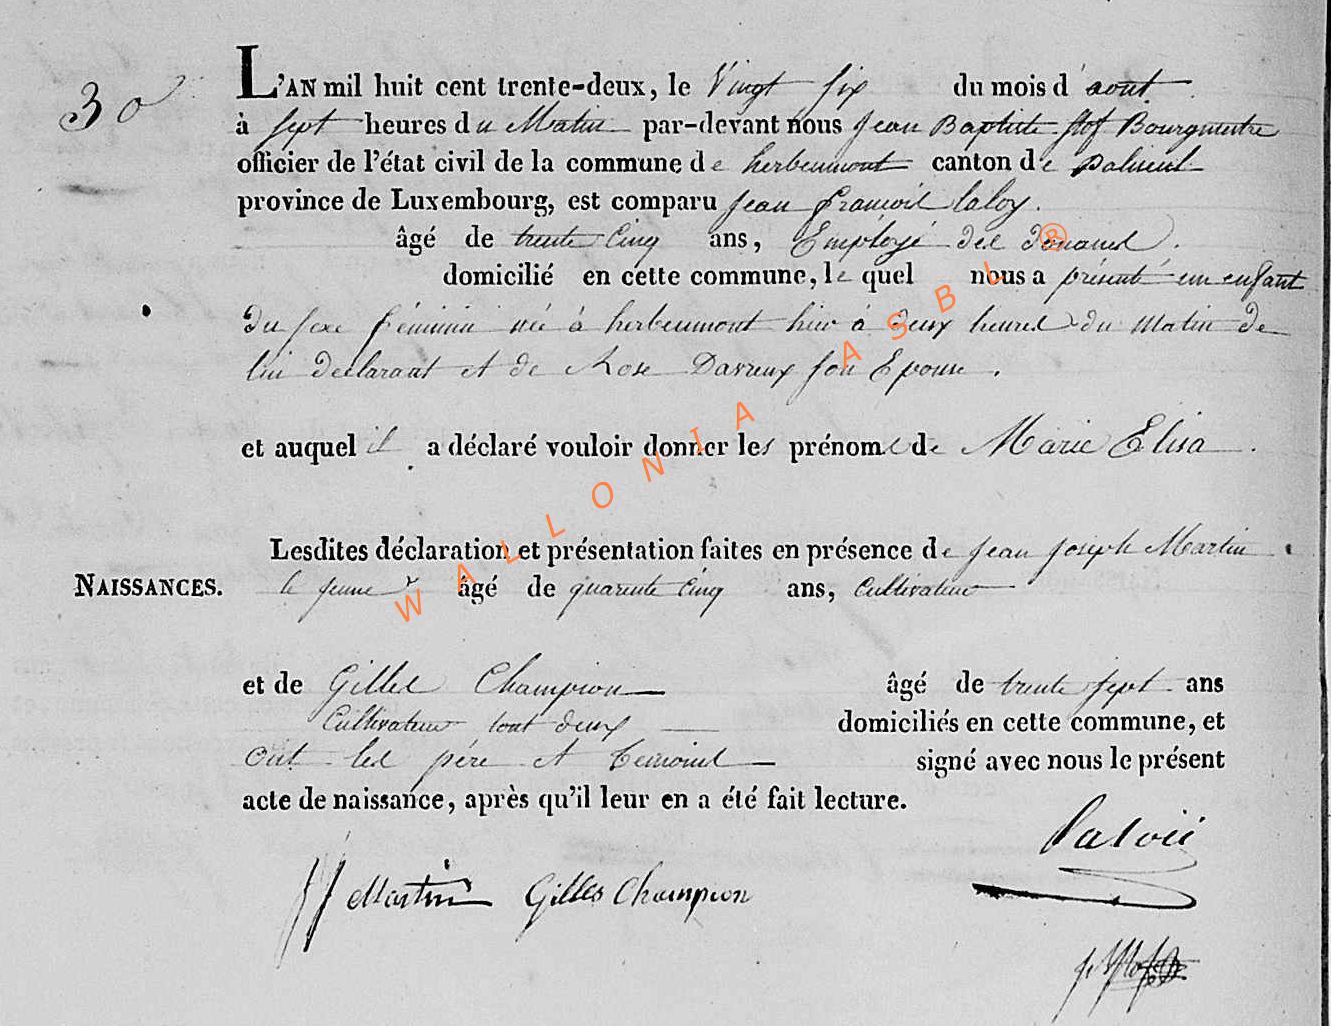 30
L'AN mil huit cent trente-deux, le Vingt six du mois d'aout
à sept heures du Matin par-devant nous Jean Baptiste Stof Bourgmestre
officier de l'état civil de la commune de herbeumont canton de Paliseul
province de Luxembourg, est comparu Jean François laloy.
âgé de trente Cinq ans, Employé des Douanes.
domicilié en cette commune, le quel nous a présenté un enfant
du sexe féminin née à herbeumont hier à deux heures du Matin de
lui declarant et de Rose Davreux son Epouse.
et auquel il a déclaré vouloir donner les prénoms de Marie Elisa.
Lesdites déclaration et présentation faites en présence de Jean Joseph Martin
NAISSANCES. le jeune âgé de quarente Cinq ans, Cultivateur
et de Gilles Champion âgé de trente sept ans
Cultivateur tout deux domiciliés en cette commune, et
Ont les père et temoins signé avec nous le présent
acte de naissance, après qu'il leur en a été fait lecture.
JJ Martin Gilles Champion
WALLONIA ASBL ®